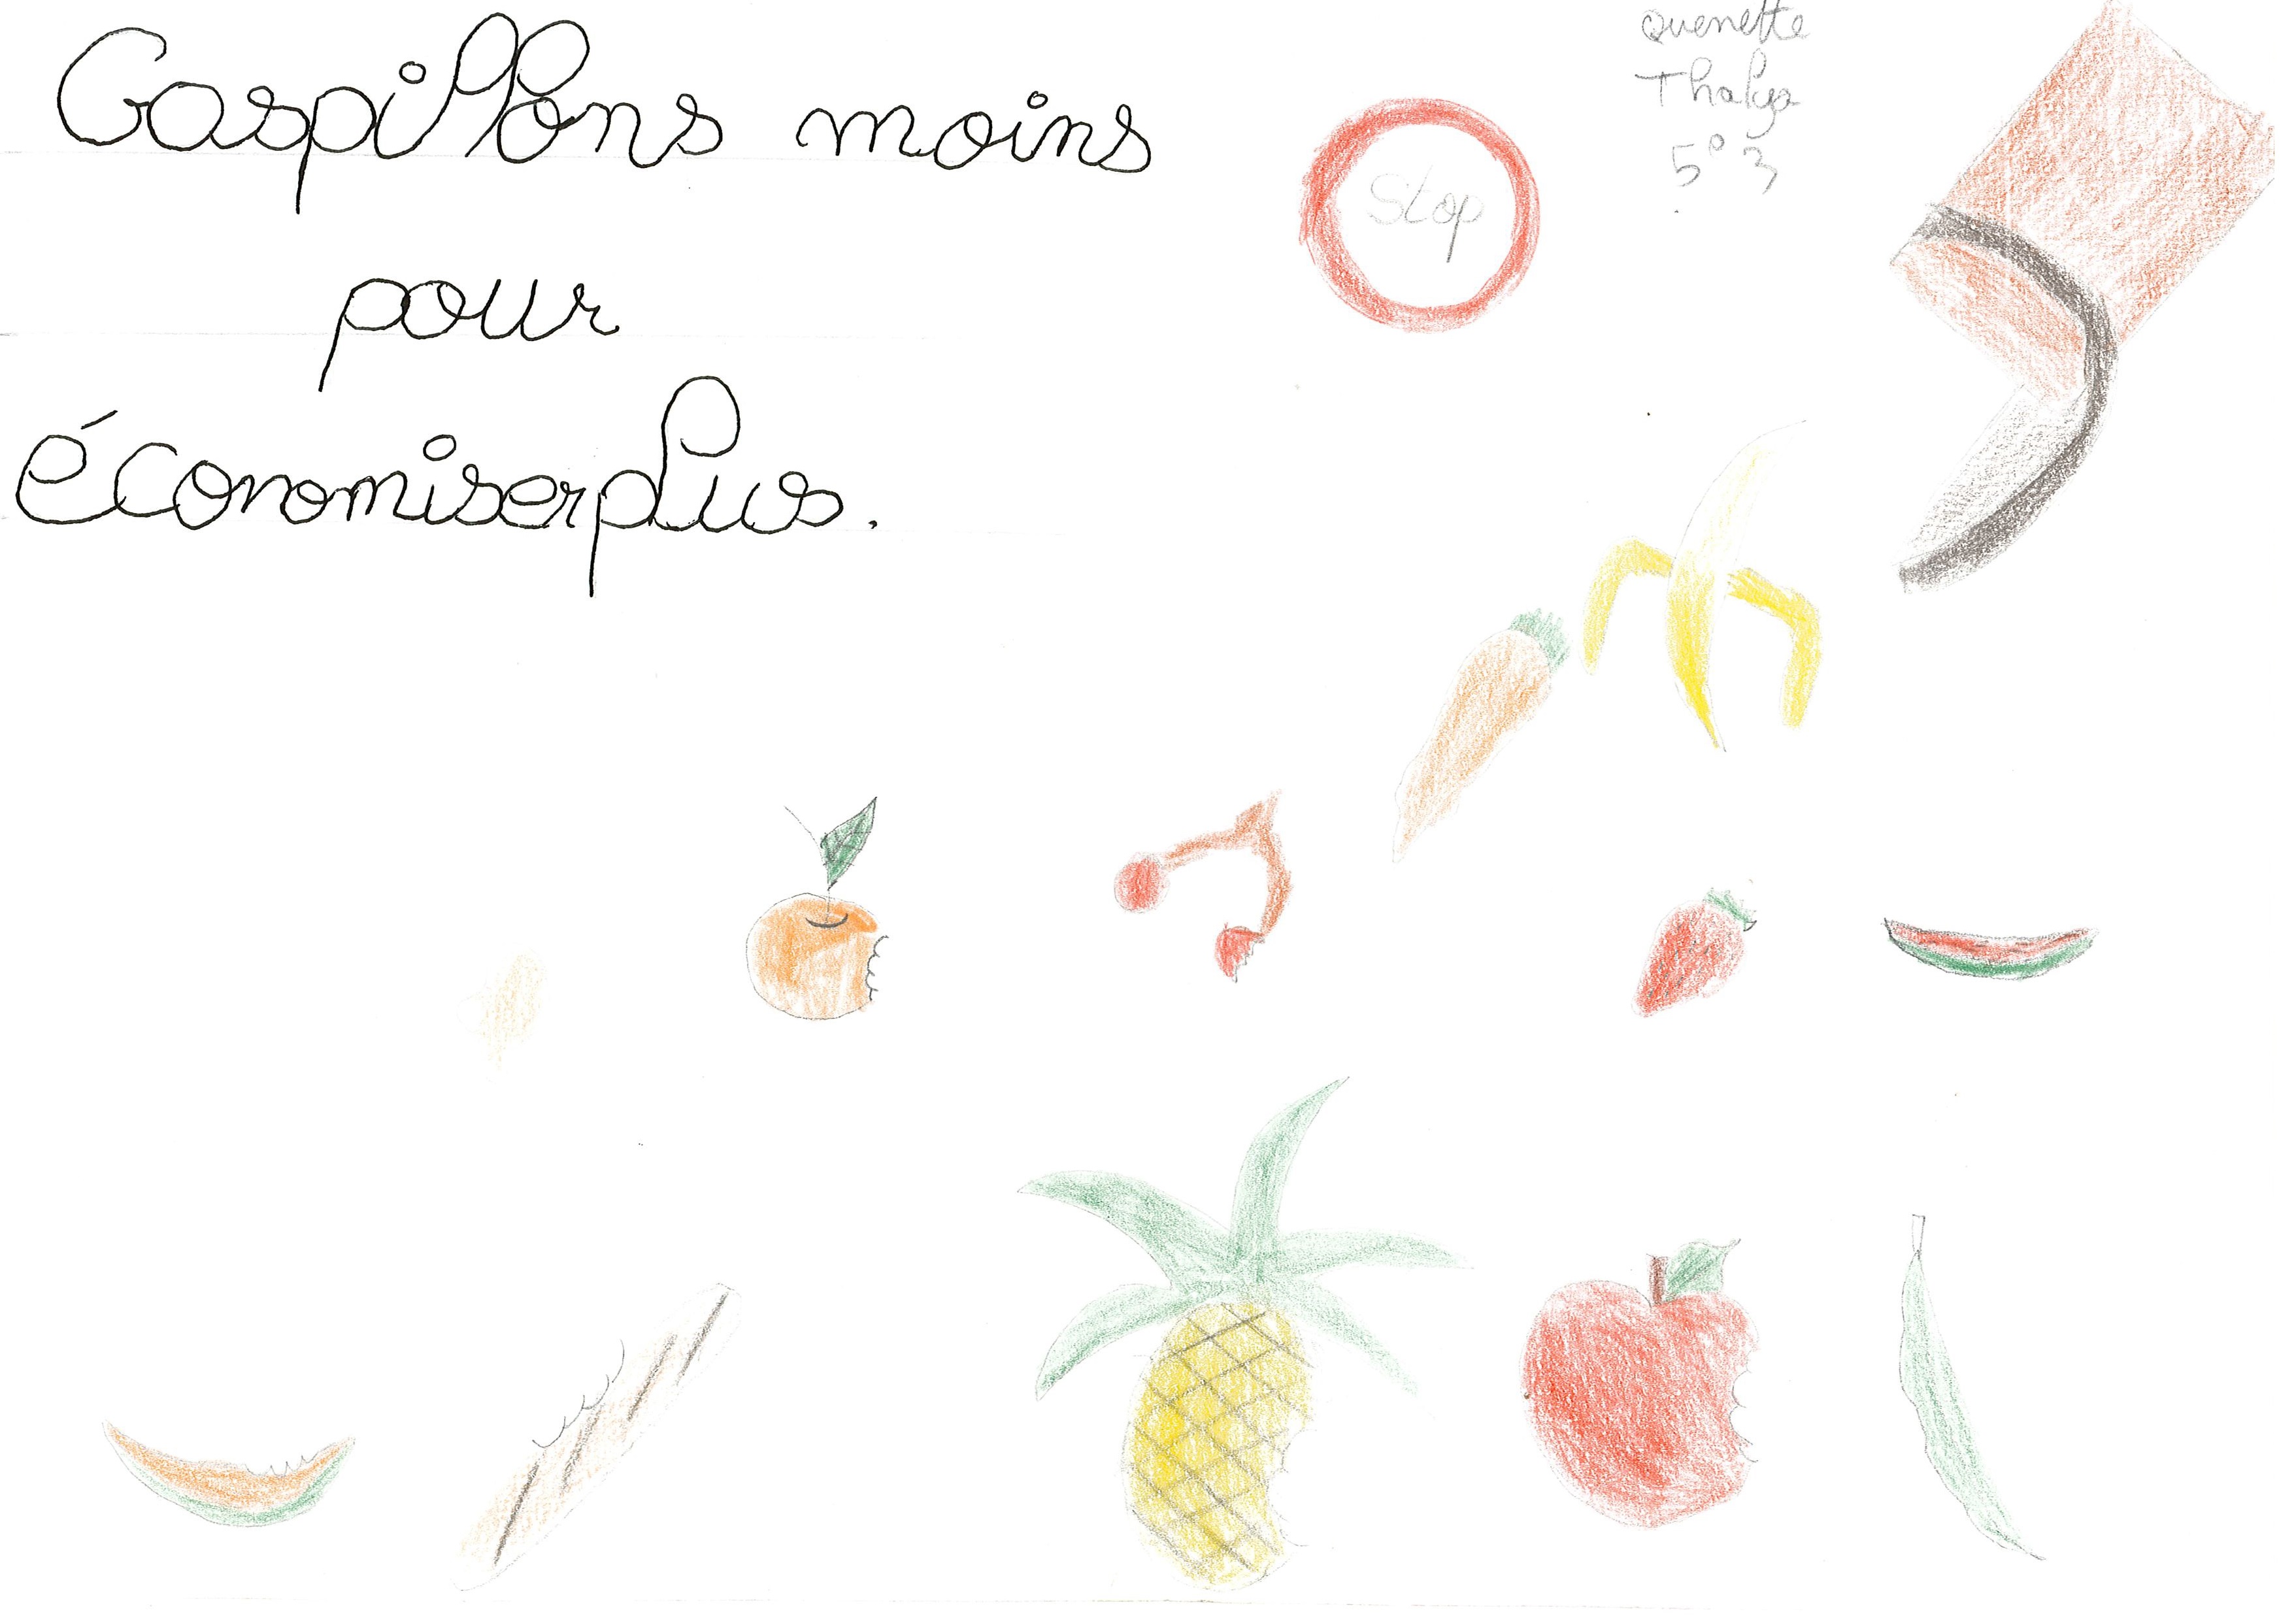 Gaspillons moins
pour
économiser plus.
Stop
Quenette
Thalya
5° 3